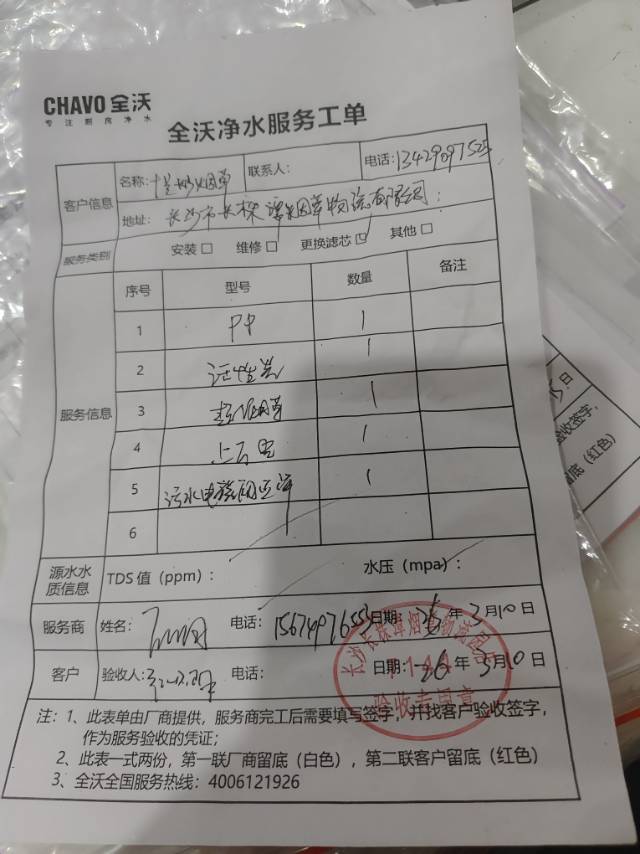 CHAVO 全沃
专注厨房净水
全沃净水服务工单
客户信息
名称: 烟草 联系人: 电话: 13429097525
地址: 长沙市长株潭烟草物流有限公司
服务类别 安装□ 维修□ 更换滤芯☑ 其他□
服务信息
序号 型号 数量 备注
1 PP 1
2 1
3 1
4 1
5 污水电磁阀 1
6
源水水质信息 TDS 值（ppm）： 水压（mpa）：
服务商 姓名: 电话: 日期: 26 年 3 月 10 日
客户 验收人: 电话: 日期: 26 年 3 月 10 日
注：1、此表单由厂商提供，服务商完工后需要填写签字，并找客户验收签字，
作为服务验收的凭证；
2、此表一式两份，第一联厂商留底（白色），第二联客户留底（红色）
3、全沃全国服务热线：4006121926
验收专用章
验收签字，
留底（红色）